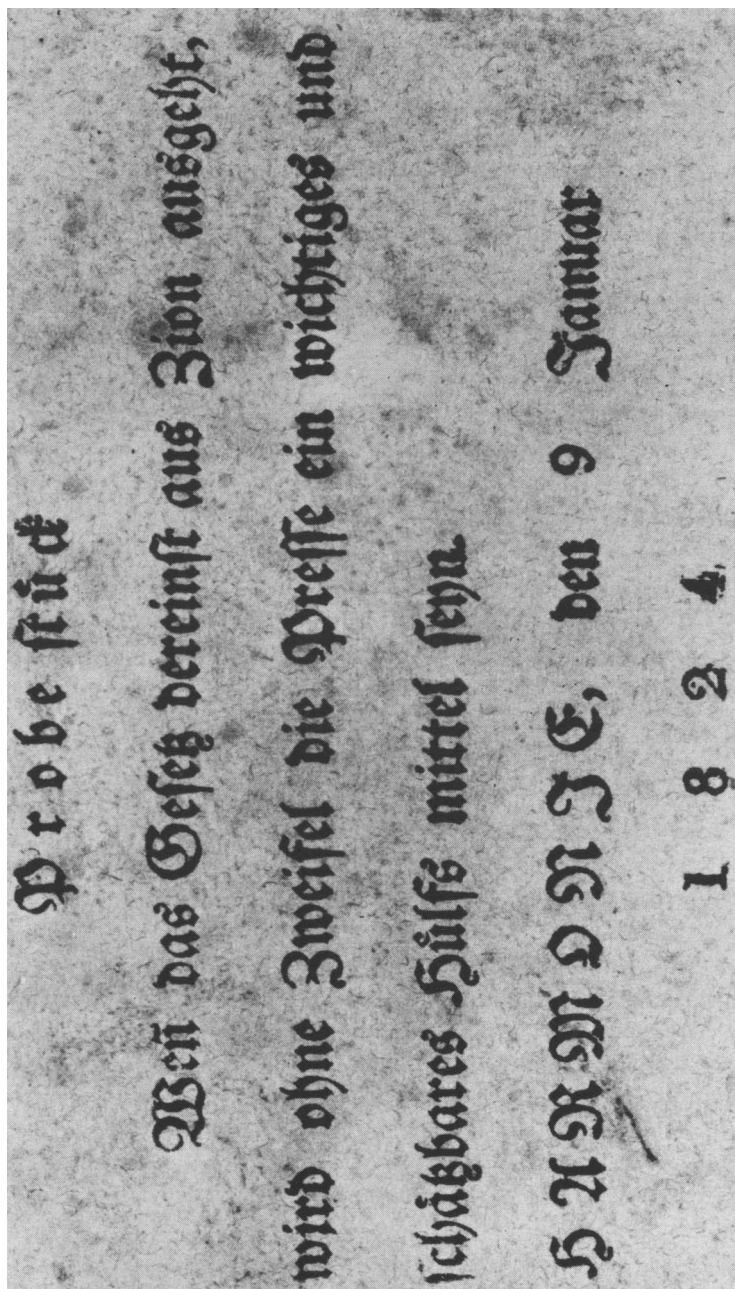 Probeſtück
Weñ das Geſetz dereinſt aus Zion ausgeht,
wird ohne Zweifel die Preſſe ein wichtiges und
ſchåtzbares Hůlfs mittel ſeyn.
HARMONIE, den 9 Januar
1824